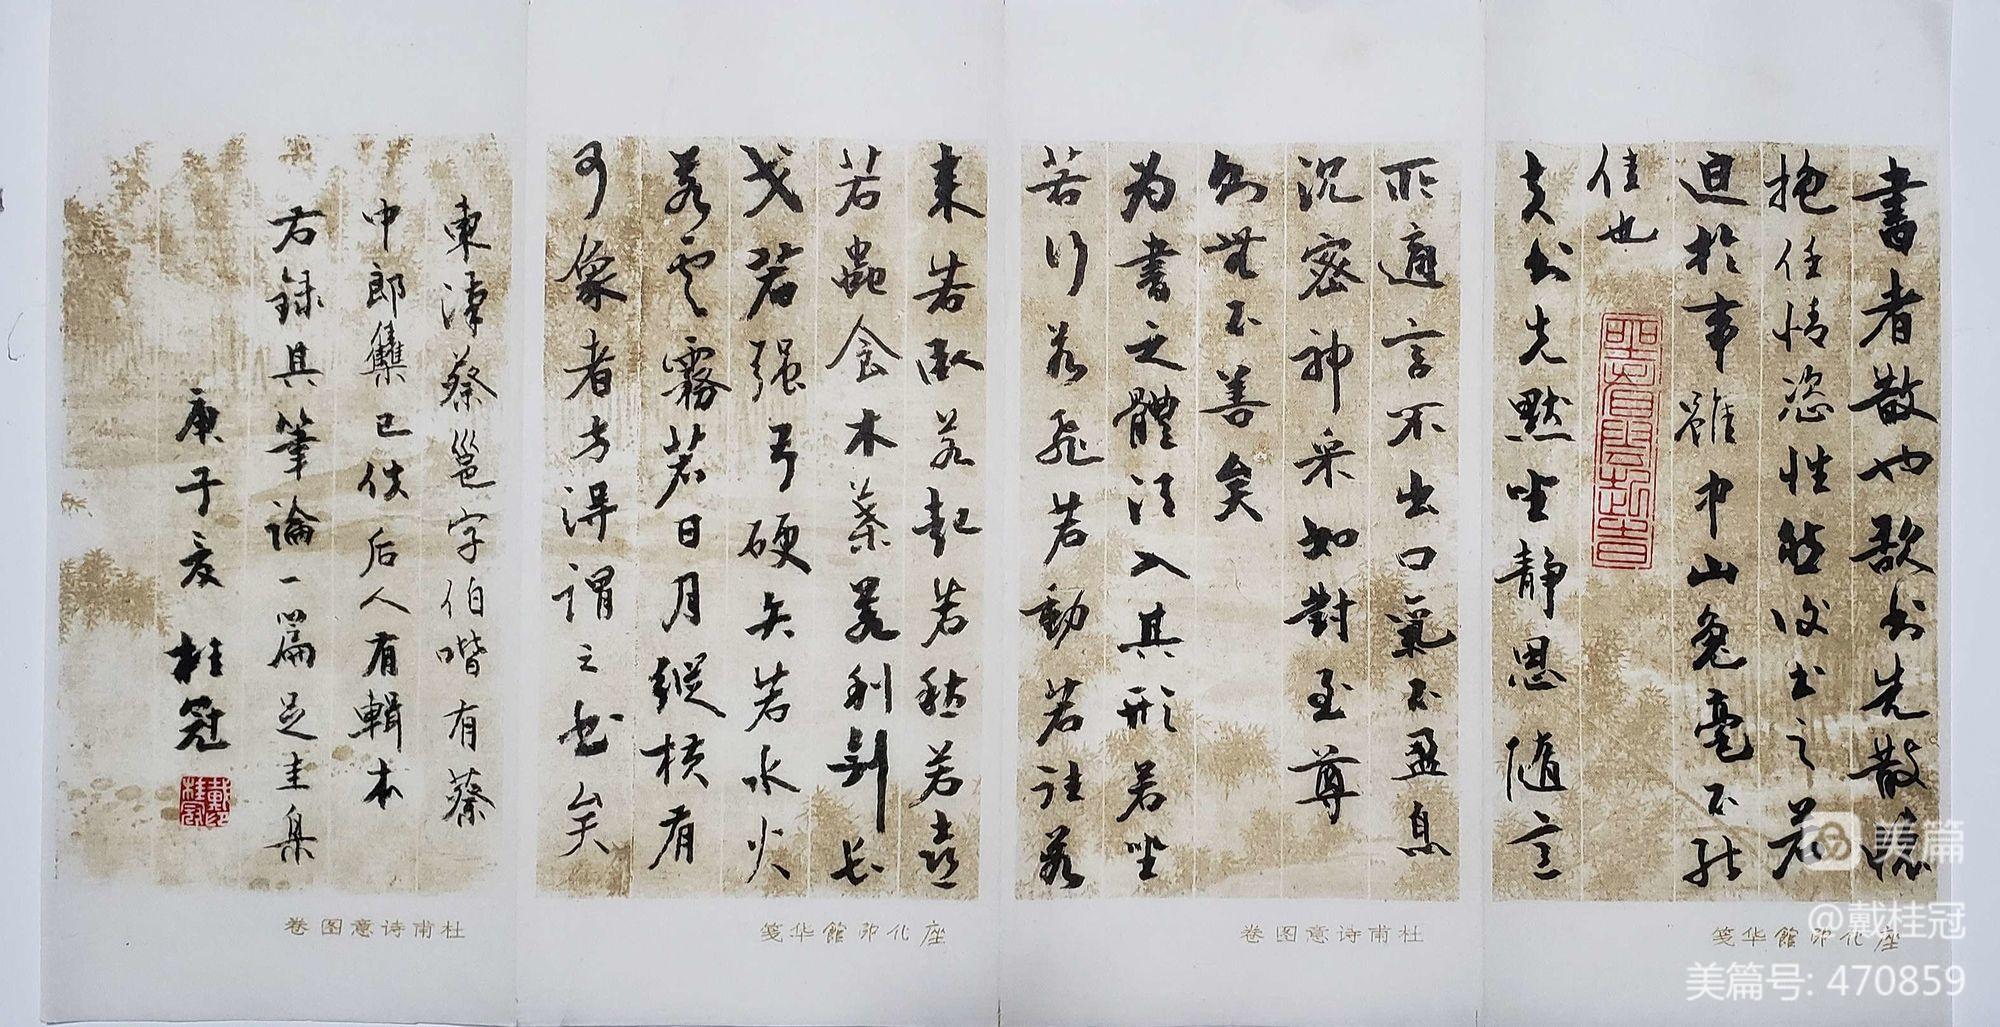 書者散也欲书先散懷
抱任情恣性然後书之若
迫於事雖中山兔毫不能
佳也
夫书先默坐静思随意
所適言不出口氣不盈息
沉密神采如對至尊
则無不善矣
为書之體須入其形若坐
若行若飛若動若往若
来若卧若起若愁若喜
若蟲食木葉若利劍长
戈若强弓硬矢若水火
若雲霧若日月縱横有
可象者方得謂之书矣
東漢蔡邕字伯喈有蔡
中郎集已佚后人有輯本
右録其筆論一篇
庚子夏 桂冠
戴印桂冠
杜甫诗意图卷
笺华館
杜甫诗意图卷
笺华館
美篇
@戴桂冠
美篇号: 470859